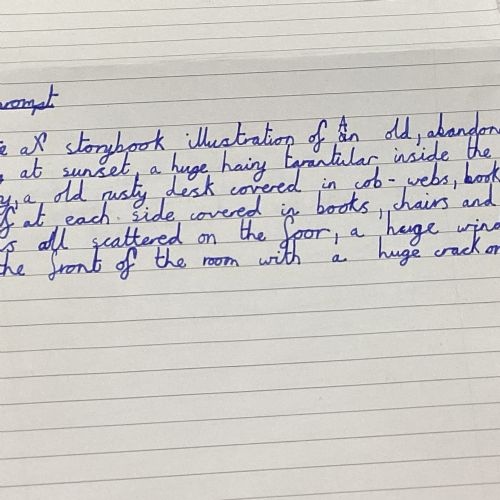 storybook illustration of an old,
at sunset, a huge hairy tarantular inside the
a old rusty desk covered in cob-webs, book
at each side covered in books, chairs and
all scattered on the foor, a huge
the front of the room with a huge crack on